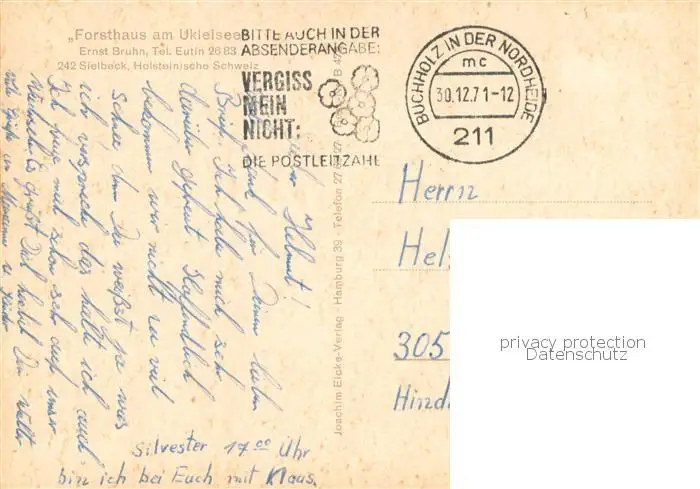 „Forsthaus am Ukleisee
Ernst Bruhn, Tel. Eutin 26 83
242 Sielbeck, Holsteinische Schweiz
BITTE AUCH IN DER
ABSENDERANGABE:
VERGISS
MEIN
NICHT:
DIE POSTLEITZAHL
BUCHHOLZ IN DER NORDHEIDE
mc
30.12.71-12
211
Joachim Eicke-Verlag - Hamburg 39 - Telefon 27
Helmut!
für Deinen lieben
Brief. Ich habe mich sehr
darüber gefreut. Hoffentlich
bekommen wir nicht zu viel
Schnee denn Du weißt ja was
ich versprach das halte ich auch.
Ich freue mich schon sehr auf unser
Es grüßt Dich
Silvester 17⁰⁰ Uhr
bin ich bei Euch mit Klaus.
Herrn
Hel
305
Hind
privacy protection
Datenschutz